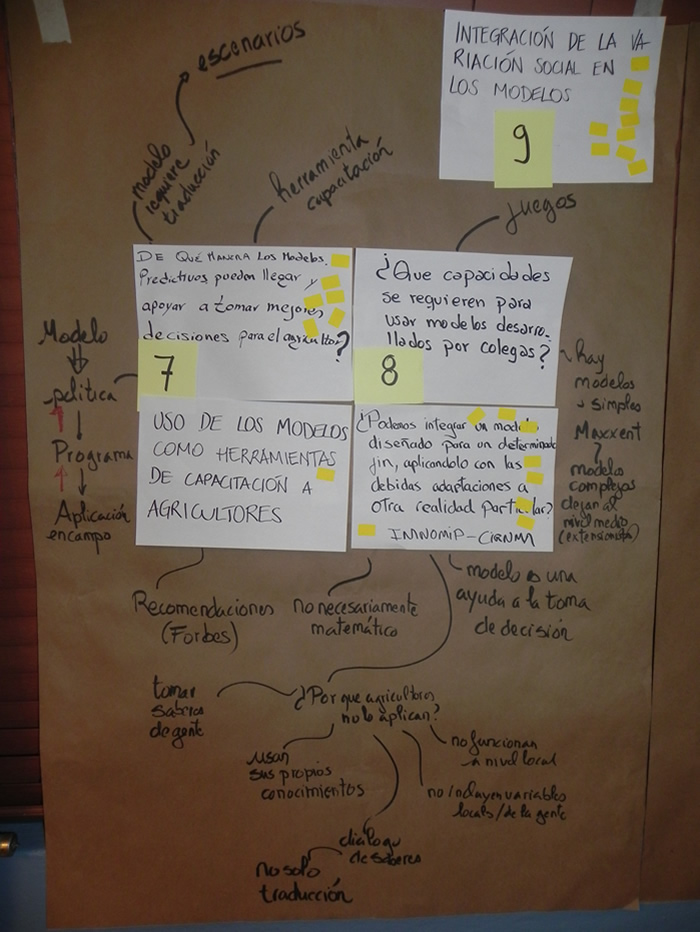 escenarios
modelo
requiere
traducción
herramienta
capacitación
INTEGRACIÓN DE LA VA-
RIACIÓN SOCIAL EN
LOS MODELOS
9
juegos
DE QUÉ MANERA LOS Modelos
Predictivos pueden llegar y
apoyar a tomar mejores
decisiones para el agricultor?
7
¿Que capacidades
se requieren para
usar modelos desarro-
llados por colegas?
8
Modelo
política
Programa
Aplicación
en campo
USO DE LOS MODELOS
COMO HERRAMIENTAS
DE CAPACITACIÓN A
AGRICULTORES
¿Podemos integrar un modelo
diseñado para un determinado
fin, aplicandolo con las
debidas adaptaciones a
otra realidad particular?
INNOMIP-CIRNMA
hay
modelos
simples
Maxxent
modelos
complejos
dejan al
nivel medio
(extensionista)
Recomendaciones
(Forbes)
no necesariamente
matemático
modelo es una
ayuda a la toma
de decisión
tomar
saberes
de gente
¿Por que agricultores
no lo aplican?
usan
sus propios
conocimientos
no funcionan
a nivel local
no incluyen variables
locals/de la gente
dialogo
de saberes
no solo
traducción